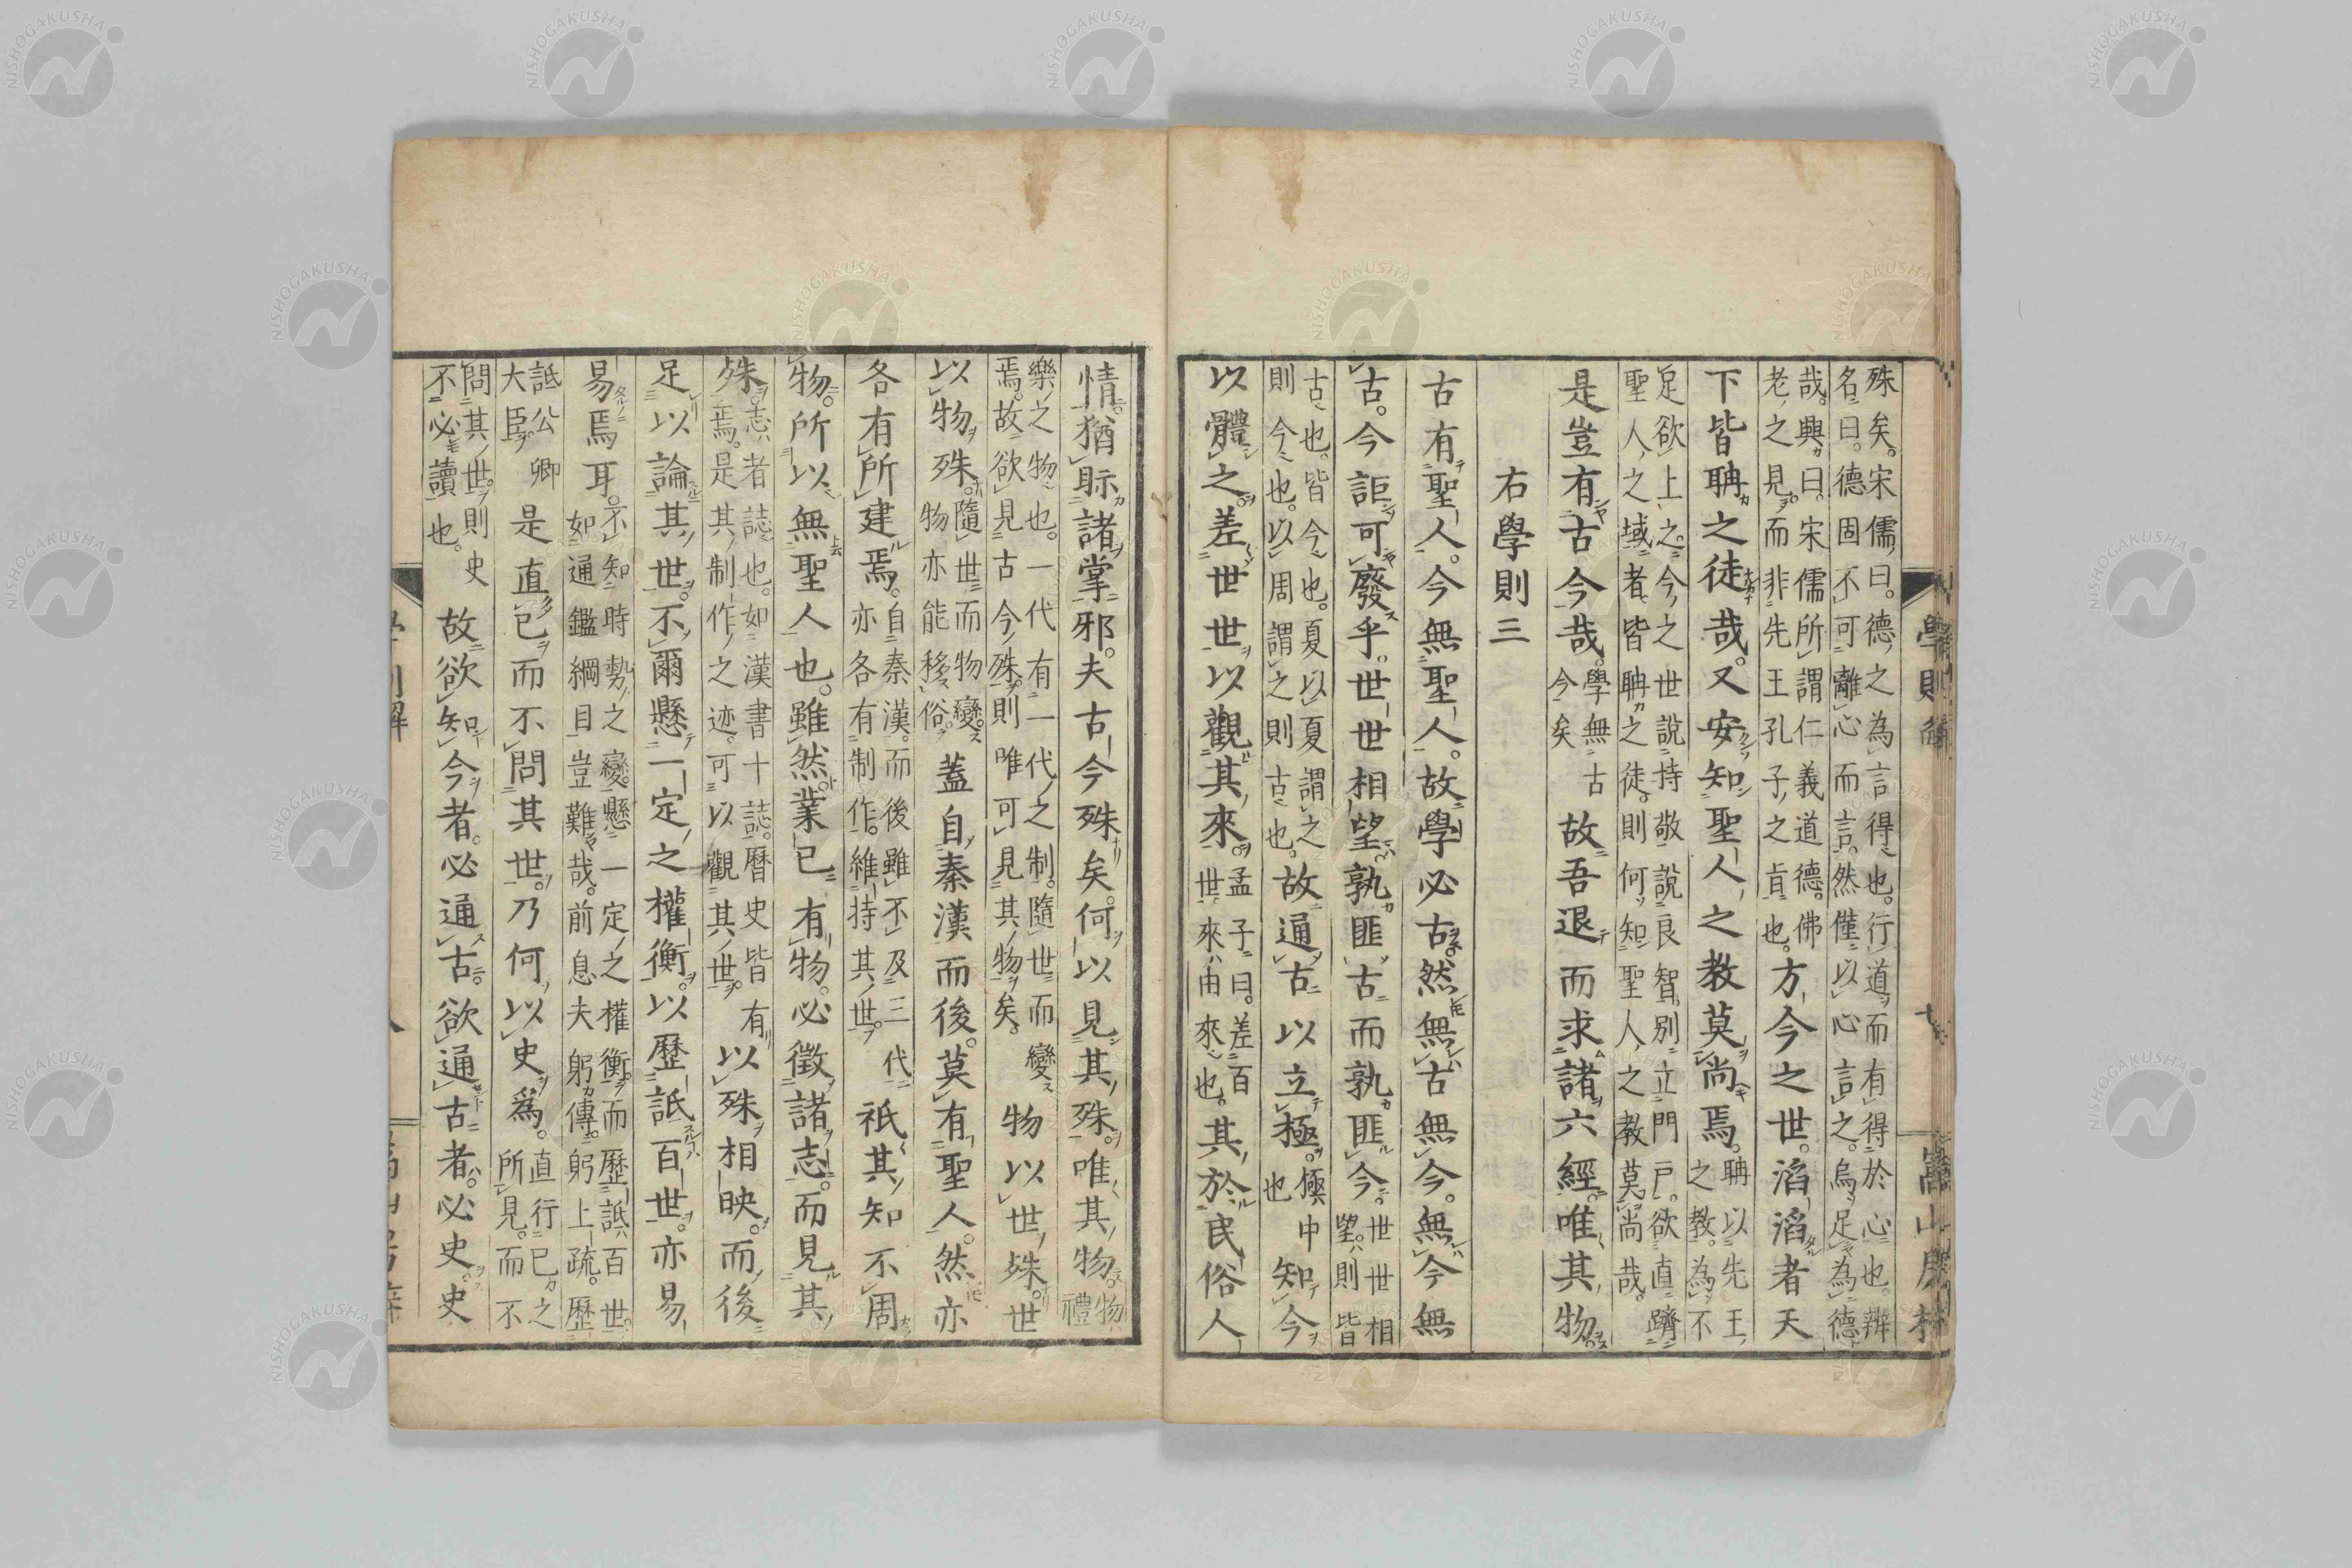 殊矣。宋儒曰。德之為言得也。行道而有得於心也。辨
名曰。德固不可離心而言。然僅以心言之。烏足為德
哉。興曰。宋儒所謂仁義道德。佛
老之見。而非先王孔子之㫖也。方今之世。滔滔者天
下皆聃之徒哉。又安知聖人之教莫尚焉。聃以先王
之教。為不
足欲上之。今之世說持敬說良智。別立門戶。欲直躋
聖人之域者。皆聃之徒。則何知聖人之教莫尚哉。
是豈有古今哉。學無古
今矣故吾退而求諸六經。唯其物。
右學則三
古有聖人。今無聖人。故學必古。然無古無今。無今無
古。今詎可廢乎。世世相望。孰匪古而孰匪今。世世相
望。則皆
古也。皆今也。夏以夏謂之
則今也。以周謂之則古也。故通古以立極。極中
也知今
以體之。差世世以觀其來。孟子曰。差百
世。來由來也。其於民俗人
情。猶眎諸掌邪。夫古今殊矣。何以見其殊。唯其物。物
禮
樂之物也。一代有一代之制。隨世而變
焉。故欲見古今殊。則唯可見其物矣。物以世殊。世
以物殊。隨世而物變。
物亦能移俗。蓋自秦漢而後。莫有聖人。然亦
各有所建焉。自秦漢。而後雖不及三代
亦各有制作。維持其世。祇其知不周
物。所以無聖人也。雖然業已有物。必徵諸志。而見其
殊。志者誌也。如漢書十誌。曆史皆有
焉。是其制作之迹。可以觀其世。以殊相映。而後
足以論其世。不爾懸一定之權衡。以歷詆百世。亦易
易焉耳。不知時勢之變。懸一定之權衡。而歷詆百世。
如通鑑綱目豈難哉。前息夫躬傳。躬上疏。歷
詆公卿
大臣。是直己而不問其世。乃何以史爲。直行己之
所見。而不
問其世。則史
不必讀也。故欲知今者。必通古。欲通古者。必史史
學則解
七
嵩山房梓
八